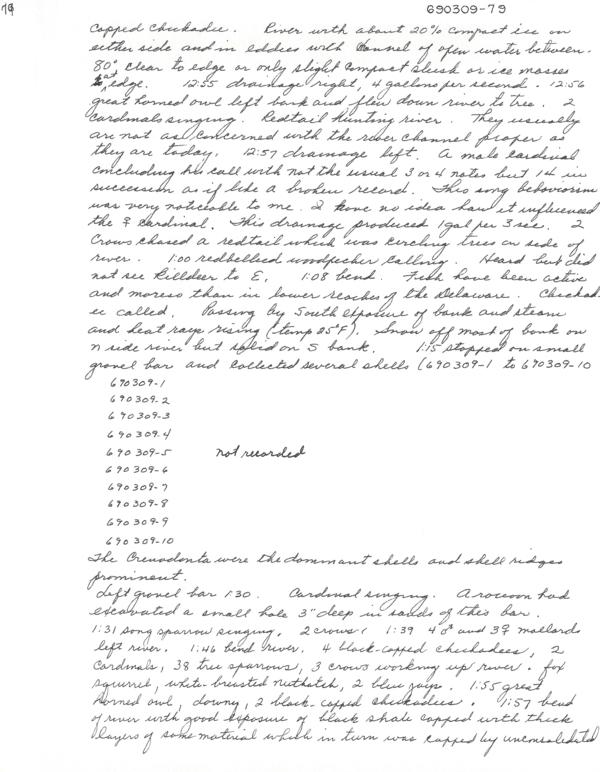 690309-79
capped Chickadee. River with about 20% compact ice on
either side and in eddies with channel of open water between.
80° clear to edge or only slight compact slush or ice masses
at edge. 12:55 drainage right, 4 gallons per second. 12:56
great horned owl left bank and flew down river to tree. 2
cardinals singing. Redtail hunting river. They usually
are not as concerned with the river channel proper as
they are today. 12:57 drainage left. A male cardinal
concluding his call with not the usual 3 or 4 notes but 14 in
succession as if like a broken record. This song behaviorism
was very noticeable to me. I have no idea how it influenced
the ♀ cardinal. This drainage produced 1 gal per 3 sec. 2
Crows chased a redtail which was circling trees on side of
river. 1:00 redbellied woodpecker calling. Heard but did
not see Killdeer to E. 1:08 bend. Fish have been active
and moreso than in lower reaches of the Delaware. Chickad-
ee called. Passing by South exposure of bank and steam
and heat rays rising (temp 25°F). Snow off most of bank on
n side river but solid on S bank. 1:15 stopped on small
gravel bar and collected several shells (690309-1 to 690309-10
690309-1
690309-2
690309-3
690309-4
690309-5 not recorded
690309-6
690309-7
690309-8
690309-9
690309-10
The Crenodonta were the dominant shells and shell ridges
prominent.
Left gravel bar 1:30. Cardinal singing. A raccoon had
excavated a small hole 3" deep in sands of this bar.
1:31 song sparrow singing, 2 crows. 1:39 4♂ and 3♀ mallards
left river. 1:46 bend river. 4 black-capped chickadees, 2
cardinals, 38 tree sparrows, 3 crows working up river. fox
squirrel, white-breasted nuthatch, 2 blue jays. 1:55 great
horned owl, downy, 2 black-capped chickadees. 1:57 bend
of river with good exposure of black shale capped with thick
layers of some material which in turn was capped by unconsolidated